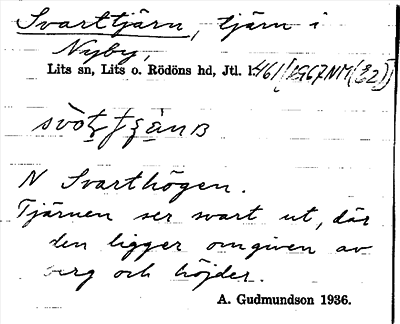 Svarttjärn, tjärn i
Nyby,
Lits sn, Lits o. Rödöns hd, Jtl. l.
N Svarthögen.
Tjärnen ser svart ut, där
den ligger omgiven av
berg och höjder.
A. Gudmundson 1936.